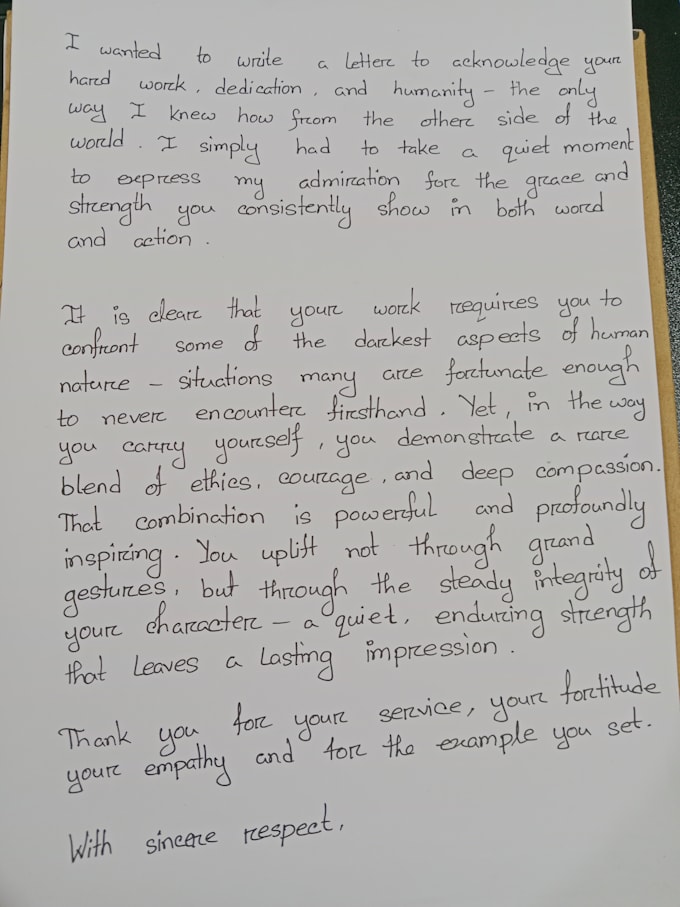 I wanted to write a letter to acknowledge your
hard work, dedication, and humanity – the only
way I knew how from the other side of the
world. I simply had to take a quiet moment
to express my admiration for the grace and
strength you consistently show in both word
and action.
It is clear that your work requires you to
confront some of the darkest aspects of human
nature – situations many are fortunate enough
to never encounter firsthand. Yet, in the way
you carry yourself, you demonstrate a rare
blend of ethics, courage, and deep compassion.
That combination is powerful and profoundly
inspiring. You uplift not through grand
gestures, but through the steady integrity of
your character – a quiet, enduring strength
that leaves a lasting impression.
Thank you for your service, your fortitude
your empathy and for the example you set.
With sincere respect,